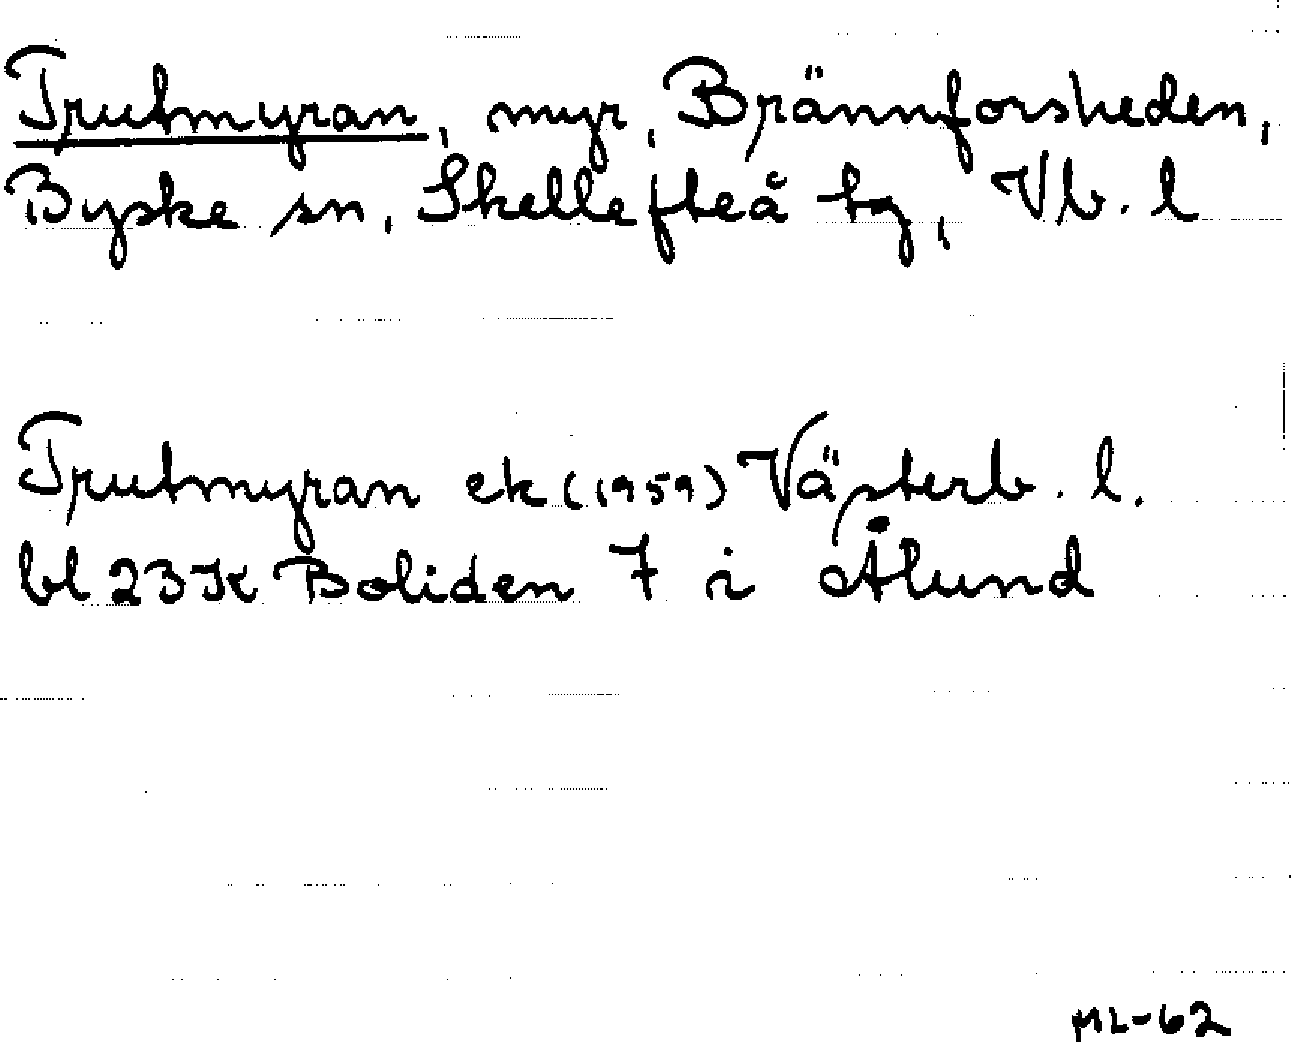 Trutmyran, myr, Brännforsheden,
Byske sn, Skellefteå tg, Vb. l
Trutmyran ek (1959) Västerb. l.
bl 23 K Boliden 7 i Ålund
ML-62